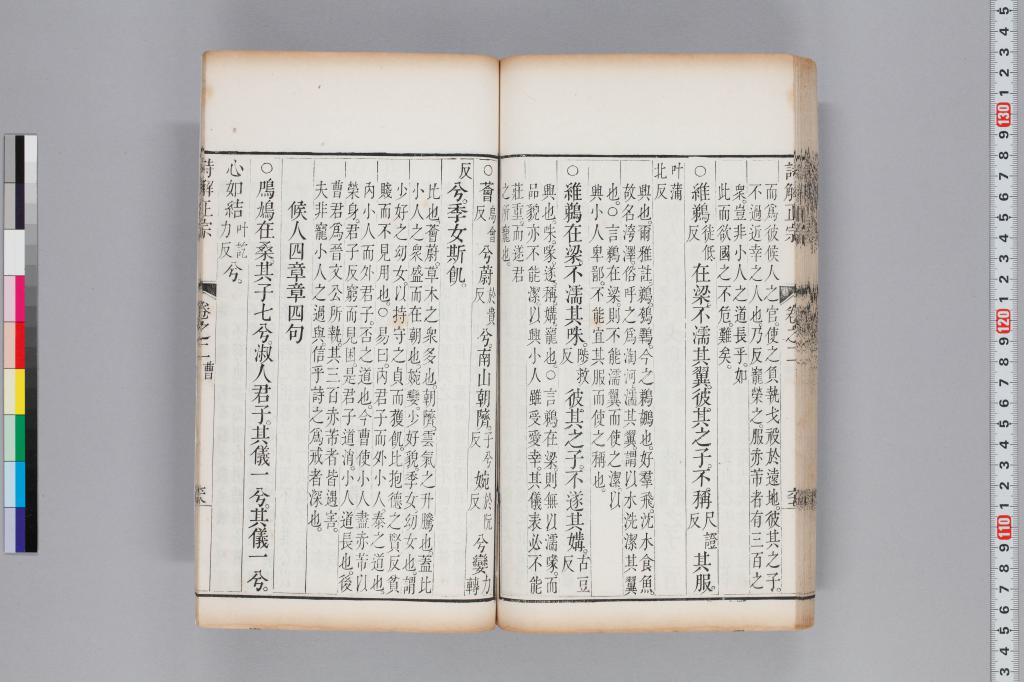 詩解正宗 卷之二
而爲彼候人之官使之負執戈祋於遠地。彼其之子。
不過近幸之人也乃反寵榮之服赤芾者有三百之
衆。豈非小人之道長乎。如
此而欲國之不危。難矣。
○維鵜徒低反在梁。不濡其翼。彼其之子。不稱尺證反其服。
叶蒲北反
興也。爾雅註鵜。鴮鸅。今之鵜鶘也好羣飛沈水食魚。
故名洿澤。俗呼之爲淘河濡其翼。謂以水洗潔其翼
也。○言鵜在梁。則不能濡翼而使之潔。以
興小人卑鄙。不能宜其服而使之稱也。
○維鵜在梁。不濡其咮。陟救反彼其之子。不遂其媾。古豆反
興也。咮。喙。遂。稱。媾。寵也。○言鵜在梁。則無以濡喙。而
品貌亦不能潔。以興小人雖受愛幸。其儀表必不能
莊重。而遂君
之所寵也。
○薈烏會反兮蔚於貴反兮。南山朝隮。子兮反婉於阮反兮孌力轉
反兮。季女斯飢。
比也。薈蔚。草木之衆多也。朝隮。雲氣之升騰也。蓋比
小人之衆盛而在朝也。婉孌。少好貌。季女幼女也。謂
少好之幼女。以持守之貞而獲飢。比抱德之賢反貧
賤而不見用也。○易曰。內君子而外小人。泰之道也。
內小人而外君子。否之道也。今曹使小人盡赤芾以
榮身。君子反窮而見困。是君子道消。小人道長也。後
曹君爲晉文公所執。其三百赤者者皆遇害。
夫非寵小人之過與。信乎詩之爲戒者深也。
候人四章章四句
○鳲鳩在桑。其子七兮。淑人君子。其儀一兮。其儀一兮。
心如結叶訖力反兮。
詩解正宗 卷之二 曹